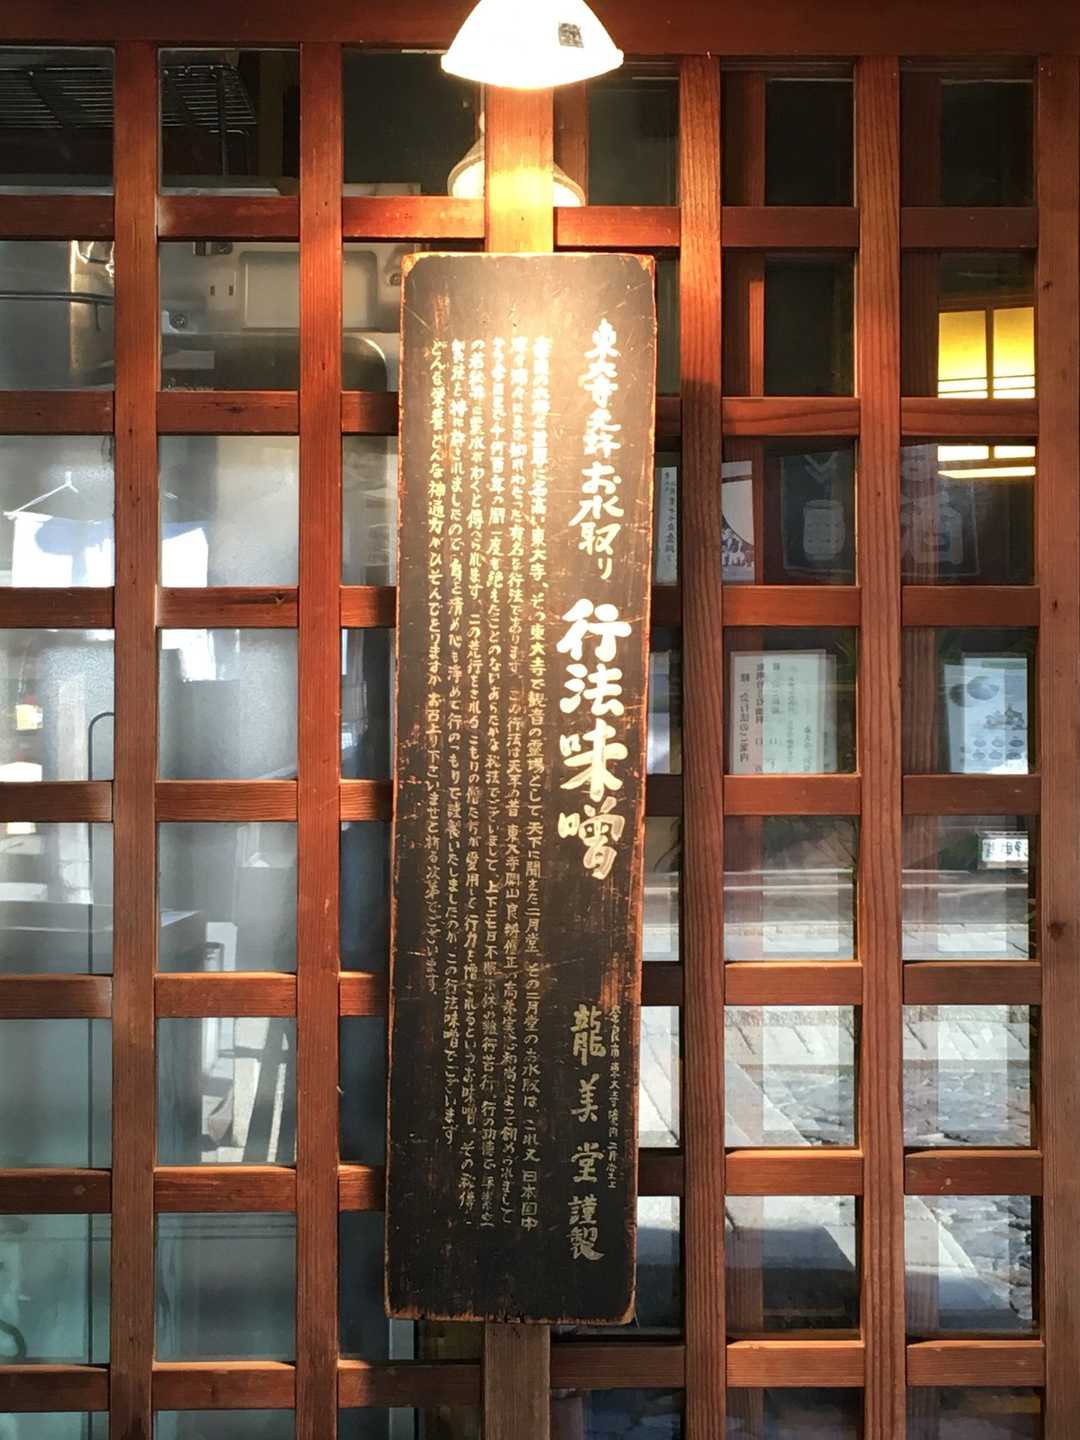 東大寺 お水取り 行法味噌
奈良市東大寺境内二月堂上
龍美堂 謹製
に名高い東大寺、その東大寺で観音の霊場として天下に聞えた二月堂 その二月堂のお水取は、これ又日本国中
津々浦々にまで知れわたった有名な行法であります。この行法は天平の昔 東大寺開山良辨僧正の高弟実忠和尚によって創められまして
から今日まで千何百年の間一度も絶えたことのないあらたかな秘法でございまして、上下二七日不眠不休の難行苦行、行の功徳で
の若狭井に霊水がわくと傳へられます。この荒行をされるこもりの僧たちが愛用して行力を増されるというお味噌。その秘傳
製法を特に許されましたので、身を清め心も浄めて行のつもりで謹製いたしましたのが、この行法味噌でございます
どんな栄養どんな神通力がひそんでをりますか お召上り下さいませと祈る次第でございます。